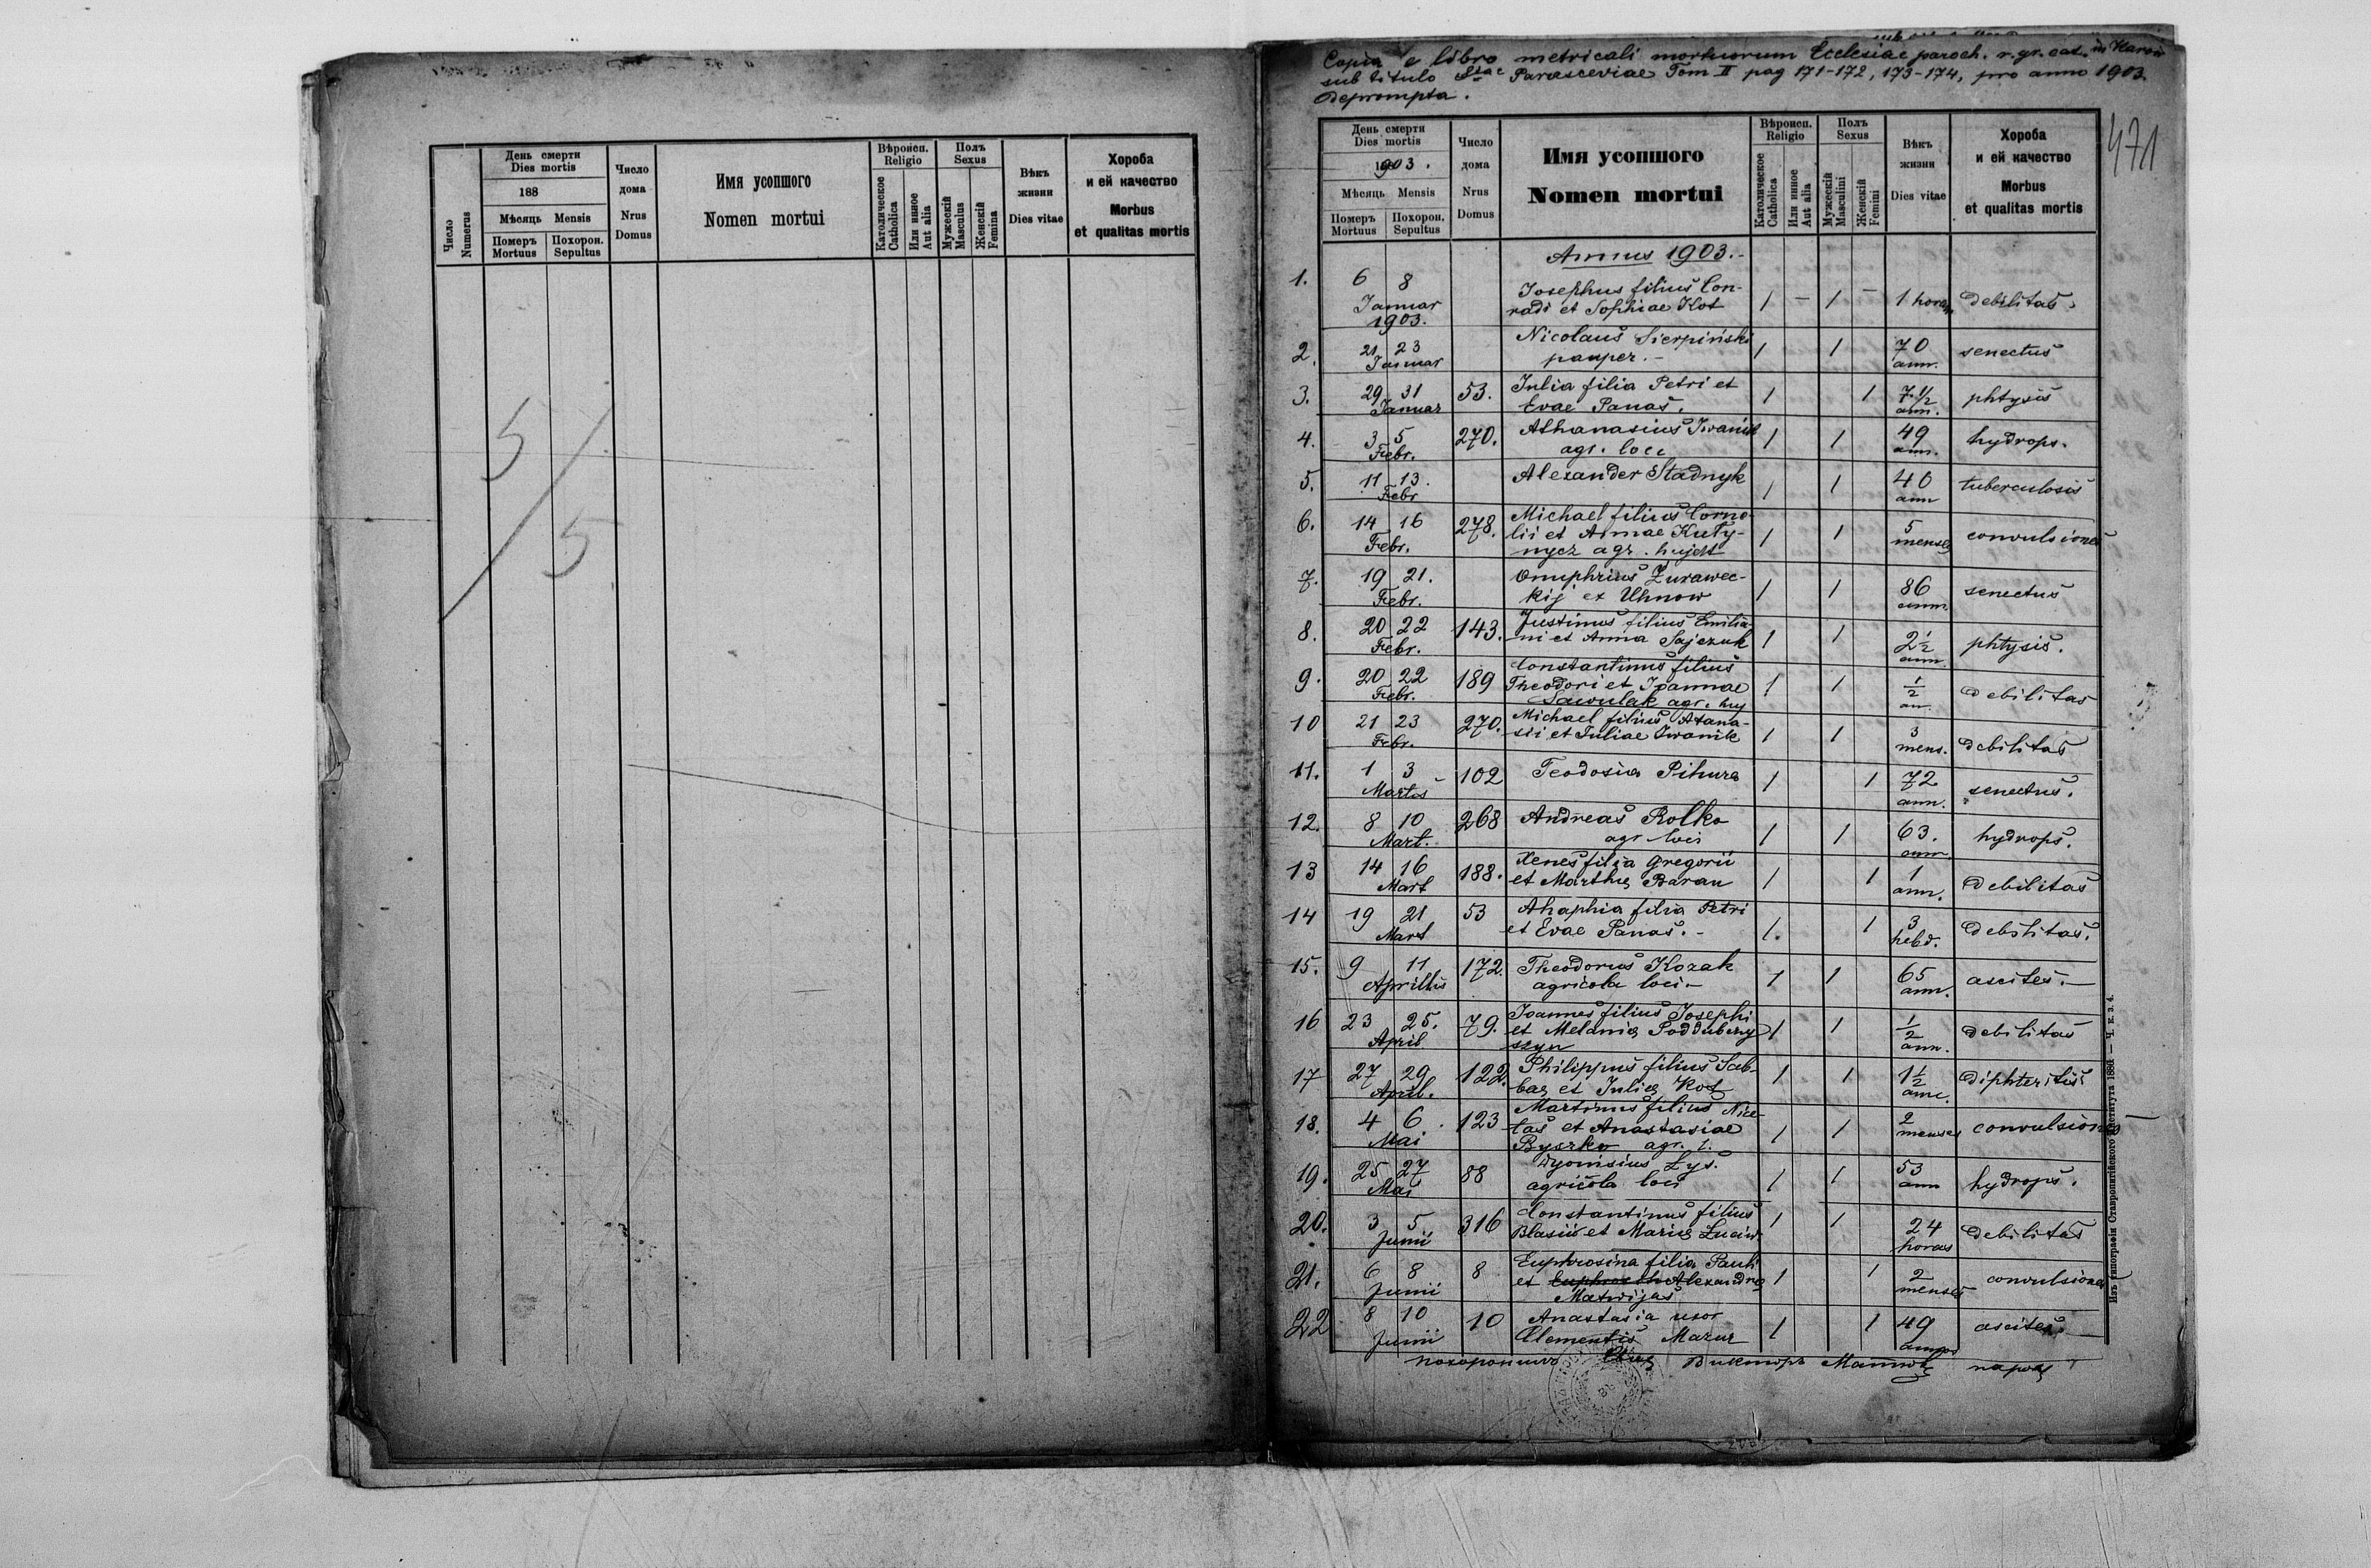 День смерти
Dies mortis
188
Мѣсяць Mensis
Померъ Похорон.
Mortuus Sepultus
Число
Numerus
Число
дома
Nrus
Domus
Имя усопшого
Nomen mortui
Вѣроисп.
Religio
Католическое
Catholica
Или инное
Aut alia
Полъ
Sexus
Мужескій
Masculus
Женскій
Femina
Вѣкъ
жизни
Dies vitae
Хороба
и ей качество
Morbus
et qualitas mortis
5
5
Copia e libro metricali mortuorum Ecclesiae paroch. r. gr. cat. in
sub titulo Stae Parasceviae Tom II pag 171-172, 173-174, pro anno 1903.
Deprompta.
471
День смерти
Dies mortis
1903.
Мѣсяць Mensis
Померъ Похорон.
Mortuus Sepultus
Число
дома
Nrus
Domus
Имя усопшого
Nomen mortui
Вѣроисп.
Religio
Католическое
Catholica
Или инное
Aut alia
Полъ
Sexus
Мужескій
Masculini
Женскій
Femini
Вѣкъ
жизни
Dies vitae
Хороба
и ей качество
Morbus
et qualitas mortis
Annus 1903.-
1. 6 8 Josephus filius Con-
Januar radi et Sophiae Kot 1 - 1 - 1 hora debilitas
1903.
2. 21 23 Nicolaus Sierpiński 1 1 70 senectus
Januar pauper.- ann.
3. 29 31 53. Julia filia Petri et 1 1 7 1/2 phtysis
Januar Evae Panas. ann.
4. 3 5 270. Athanasius Iwanik 1 1 49 hydrops.
Febr. agr. loci ann.
5. 11 13. Alexander Stadnyk 1 1 40 tuberculosis
Febr ann
6. 14 16 278. Michael filius Corne-
Febr. lii et Annae Kuty- 1 1 5 convulsiones
nycz agr. menses
7. 19 21. Onuphrius Żurawec- 1 1 86 senectus
Febr. kij ex Uhnow ann.
8. 20 22 143. Justinus filius Emilia-
Febr. ni et Anna Sajczuk 1 1 2 1/2 phtysis.
ann.
9. 20 22 189 Constantinus filius
Febr. Theodori et Joannae 1 1 1/2 debilitas
Sawulak agr. an.
10 21 23 270. Michael filius Atana-
Febr. sii et Juliae Iwanik 1 1 3 debilitas
mens.
11. 1 3 102 Teodosia Pihura 1 1 72 senectus.
ann.
12. 8 10 268 Andreas Rolko 1 1 63. hydrops.
Mart. agr loci ann.
13 14 16 188. Xenes filia Gregorii
Mart et Marthae Baran 1 1 1 debilitas
ann.
14 19 21 53 Ahaphia filia Petri
Mart et Evae Panas.- 1. 1 3 debilitas.
hebd.
15. 9 11 172. Theodorus Kozak 1 1 65 ascites.-
Aprillis agricola loci- ann.
16 23 25. 79. Joannes filius Josephi
April et Melaniae Poddubczy 1 1 1/2 debilitas
szyn ann.
17 27 29 122. Philippus filius Sab-
April. bae et Juliae Kot 1 1 1 1/2 diphteritis
18. 4 6 123 Martinus filius Nice-
Mai tas et Anastasiae 1 1 2 convulsiones
Byszko agr. l. menses
19. 25 27 88 Dyonisius Łys. 1 1 53 hydrops.
Mai agricola loci ann
20. 3 5 316 Constantinus filius
Junii Blasii et Mariae 1 1 24 debilitas
horas
21. 6 8 8 Euphrosina filia Pauli
Junii et Alexandrae 1 1 2 convulsiones
Matwijas menses
22 8 10 10 Anastasia uxor
Junii Clementis Mazur 1 1 49 ascites.
похоронивъ Викторъ
Изъ типографіи Ставропигійского Института 1886. — Ч. к. з. 4.